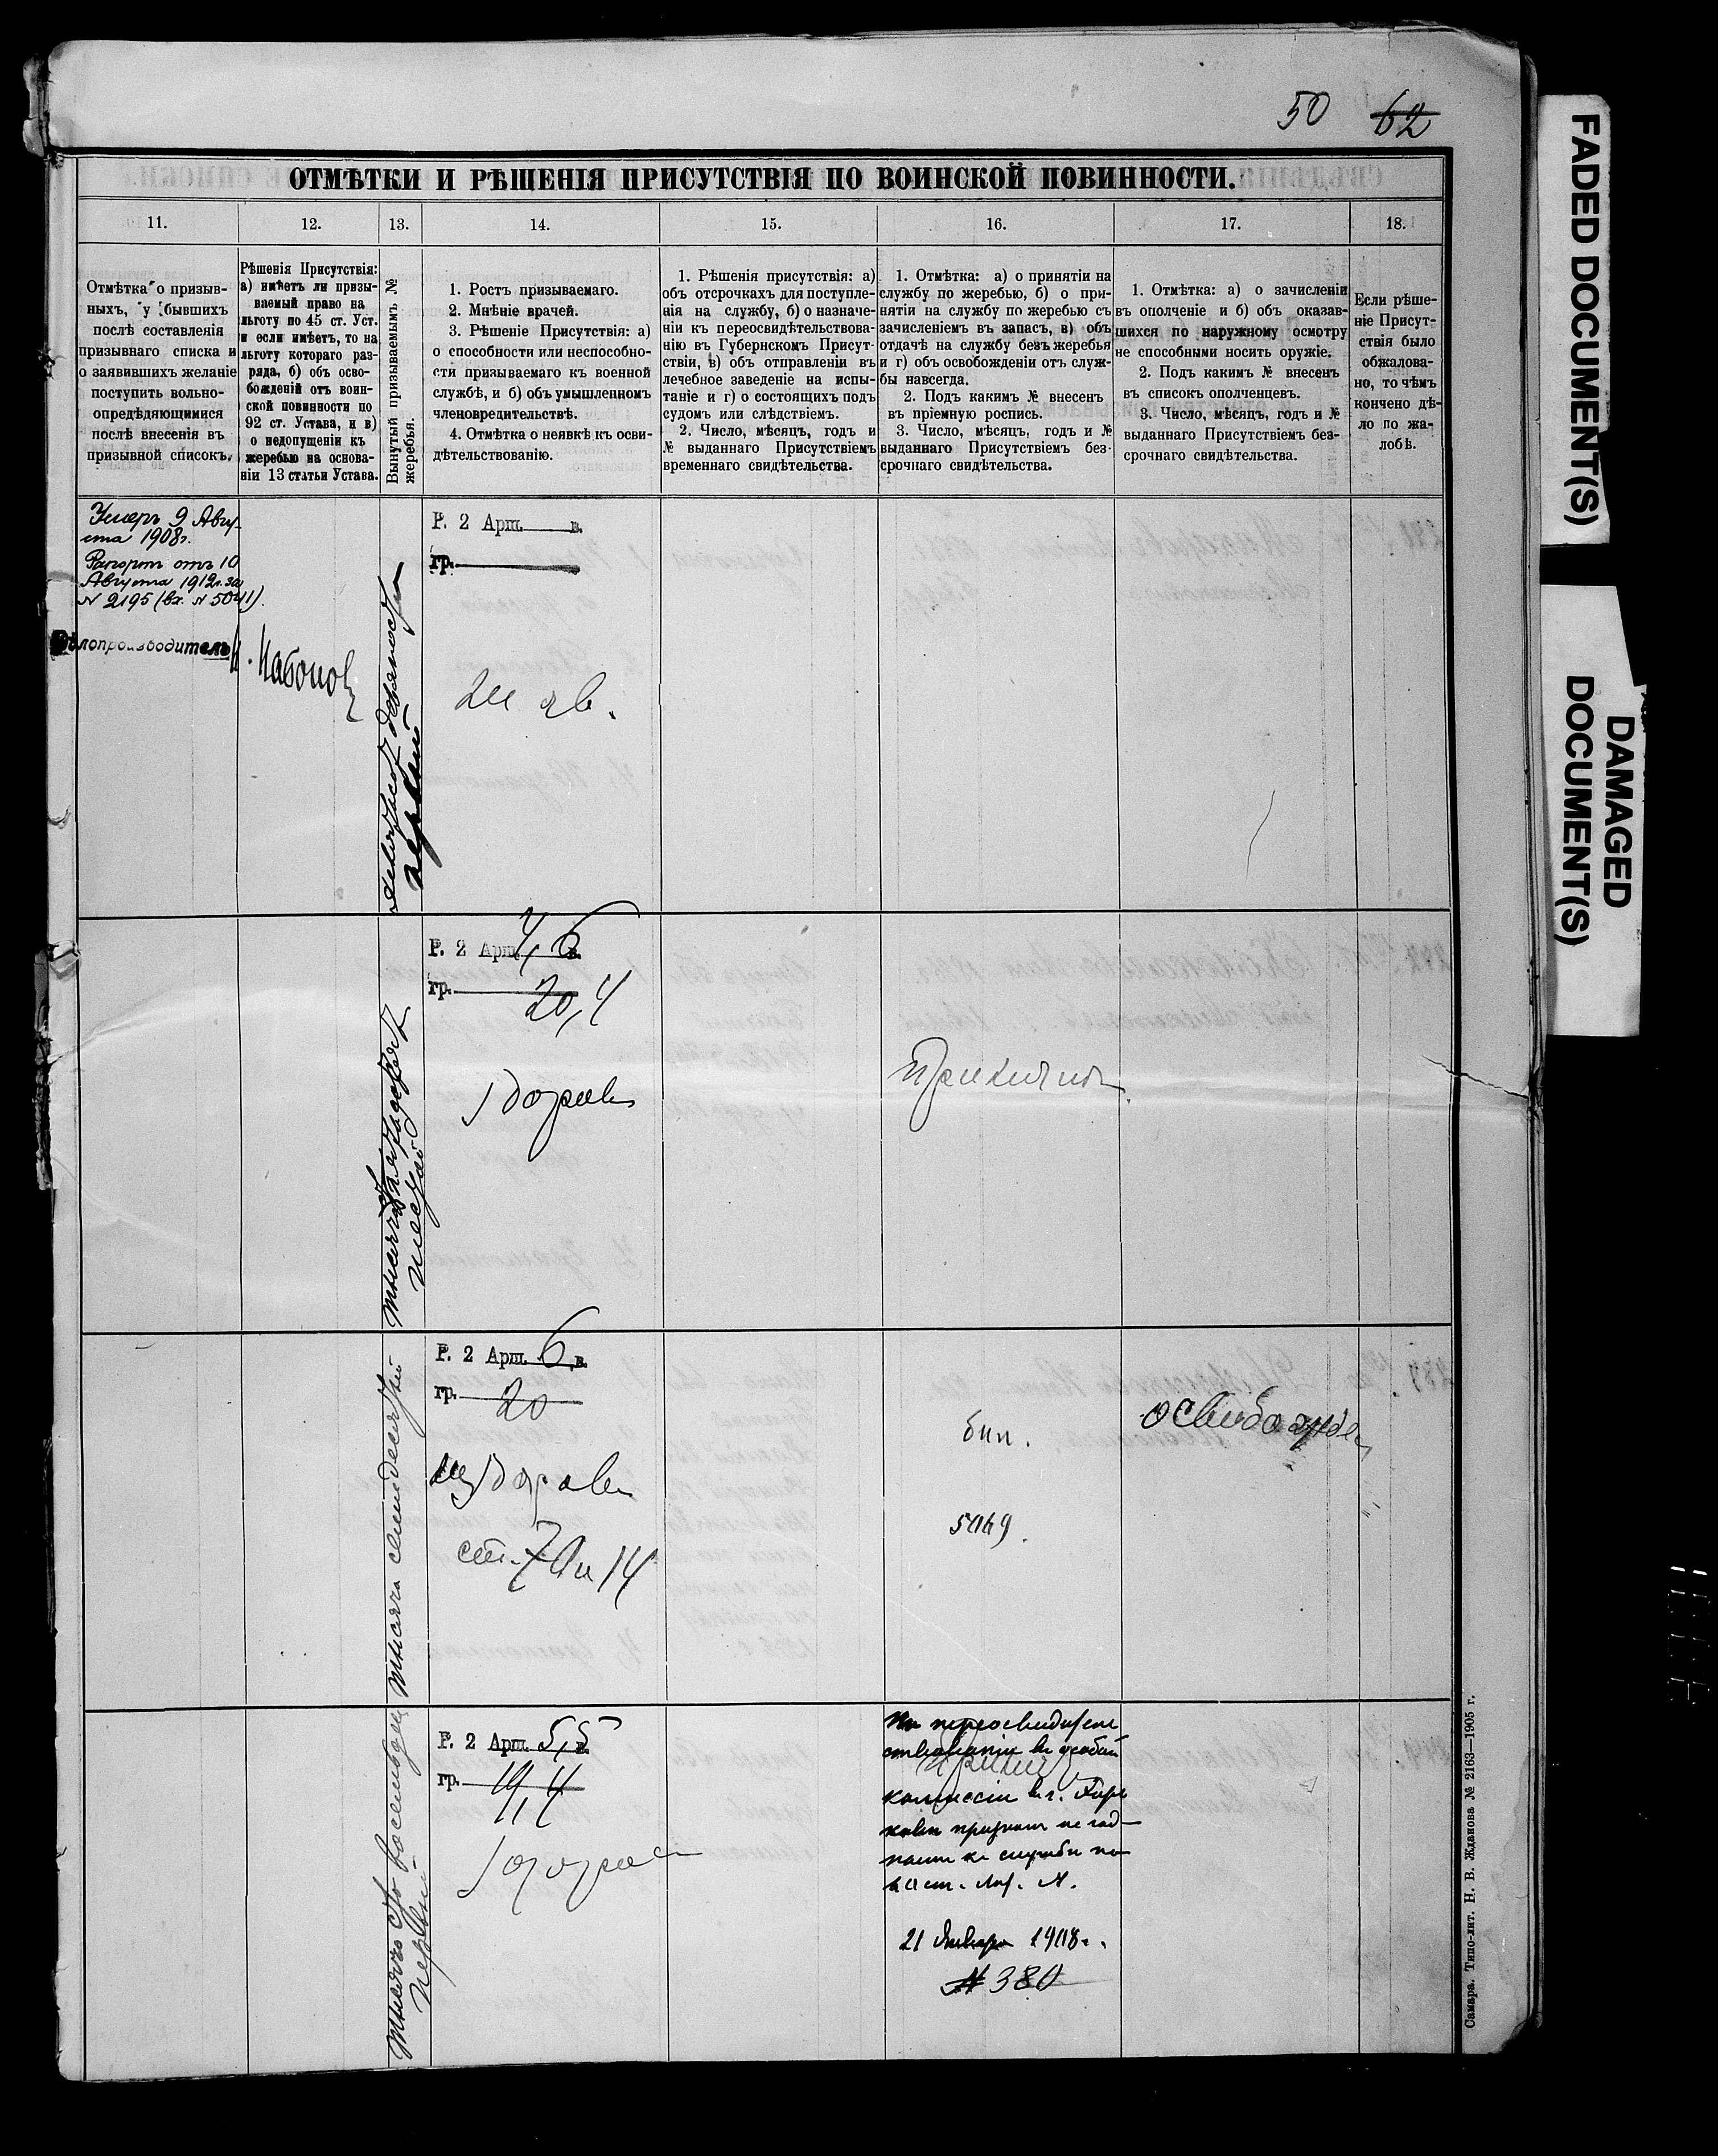 50 62
ОТМѢТКИ И РѢШЕНІЯ ПРИСУТСТВІЯ ПО ВОИНСКОЙ ПОВИННОСТИ.
11. 12. 13. 14. 15. 16. 17. 18.
Отмѣтка о призыв-
ныхъ, у бывшихъ
послѣ составленія
призывнаго списка и
о заявившихъ желаніе
поступить вольно-
опредѣляющимися
послѣ внесенія въ
призывной списокъ.
Рѣшенія Присутствія:
а) имѣетъ ли призы-
ваемый право на
льготу по 45 ст. Уст.
и если имѣетъ, то на
льготу котораго раз-
ряда, б) объ осво-
божденій отъ воин-
ской повинности по
92 ст. Устава, и в)
о недопущеніи къ
жеребью на основа-
ніи 13 статьи Устава.
Вынутый призываемымъ №
жеребья.
1. Ростъ призываемаго.
2. Мнѣніе врачей.
3. Рѣшеніе Присутствія: а)
о способности или неспособно-
сти призываемаго къ военной
службѣ, и б) объ умышленномъ
членовредительствѣ.
4. Отмѣтка о неявкѣ къ осви-
дѣтельствованію.
1. Рѣшенія присутствія: а)
объ отсрочкахъ для поступле-
нія на службу, б) о назначе-
ніи къ переосвидѣтельствова-
нію въ Губернскомъ Присут-
ствіи, в) объ отправленіи въ
лечебное заведеніе на испы-
таніе и г) о состоящихъ подъ
судомъ или слѣдствіемъ.
2. Число, мѣсяцъ, годъ и
№ выданнаго Присутствіемъ
временнаго свидѣтельства.
1. Отмѣтка: а) о принятіи на
службу по жеребью, б) о при-
нятіи на службу по жеребью съ
зачисленіемъ въ запасъ, в) объ
отдачѣ на службу безъ жеребья
и г) объ освобожденіи отъ служ-
бы навсегда.
2. Подъ какимъ № внесенъ
въ пріемную роспись.
3. Число, мѣсяцъ, годъ и №
выданнаго Присутствіемъ без-
срочнаго свидѣтельства.
1. Отмѣтка: а) о зачисленіи
въ ополченіе и б) объ оказав-
шихся по наружному осмотру
не способными носить оружіе.
2. Подъ какимъ № внесенъ
въ списокъ ополченцевъ.
3. Число, мѣсяцъ, годъ и №
выданнаго Присутствіемъ без-
срочнаго свидѣтельства.
Если рѣше-
ніе Присут-
ствія было
обжалова-
но, то чѣмъ
кончено дѣ-
ло по жа-
лобѣ.
Умеръ 9 Авгу-
ста 1908г.
Рапортъ отъ 10
Августа 1912г. за
№ 2195 (вх. № 5041).
Дѣлопроизводитель
девяносто
первый
Р. 2 Арш. в.
гр.
не яв.
тысяча
шестой
Р. 2 Арш. 4,6 в.
гр. 20,4
здоровъ
Принятъ
тысяча семидесятый
Р. 2 Арш. 6 в.
гр. 20
нездоровъ
ст. 7
бил.
5069.
освобожденъ
тысяча сто восемьдесятъ
первый
Р. 2 Арш. 5,5 в.
гр. 19,4
здоровъ
По переосвидѣтель
ствованіи въ особой
принятъ
коммиссіи въ г. Харь
ковѣ признанъ не год-
нымъ къ службѣ по
лит. А.
21 Января 1908г.
№ 380
Самара. Типо-лит. Н. В. Жданова № 2163—1905 г.
FADED DOCUMENT(S)
DAMAGED
DOCUMENT(S)